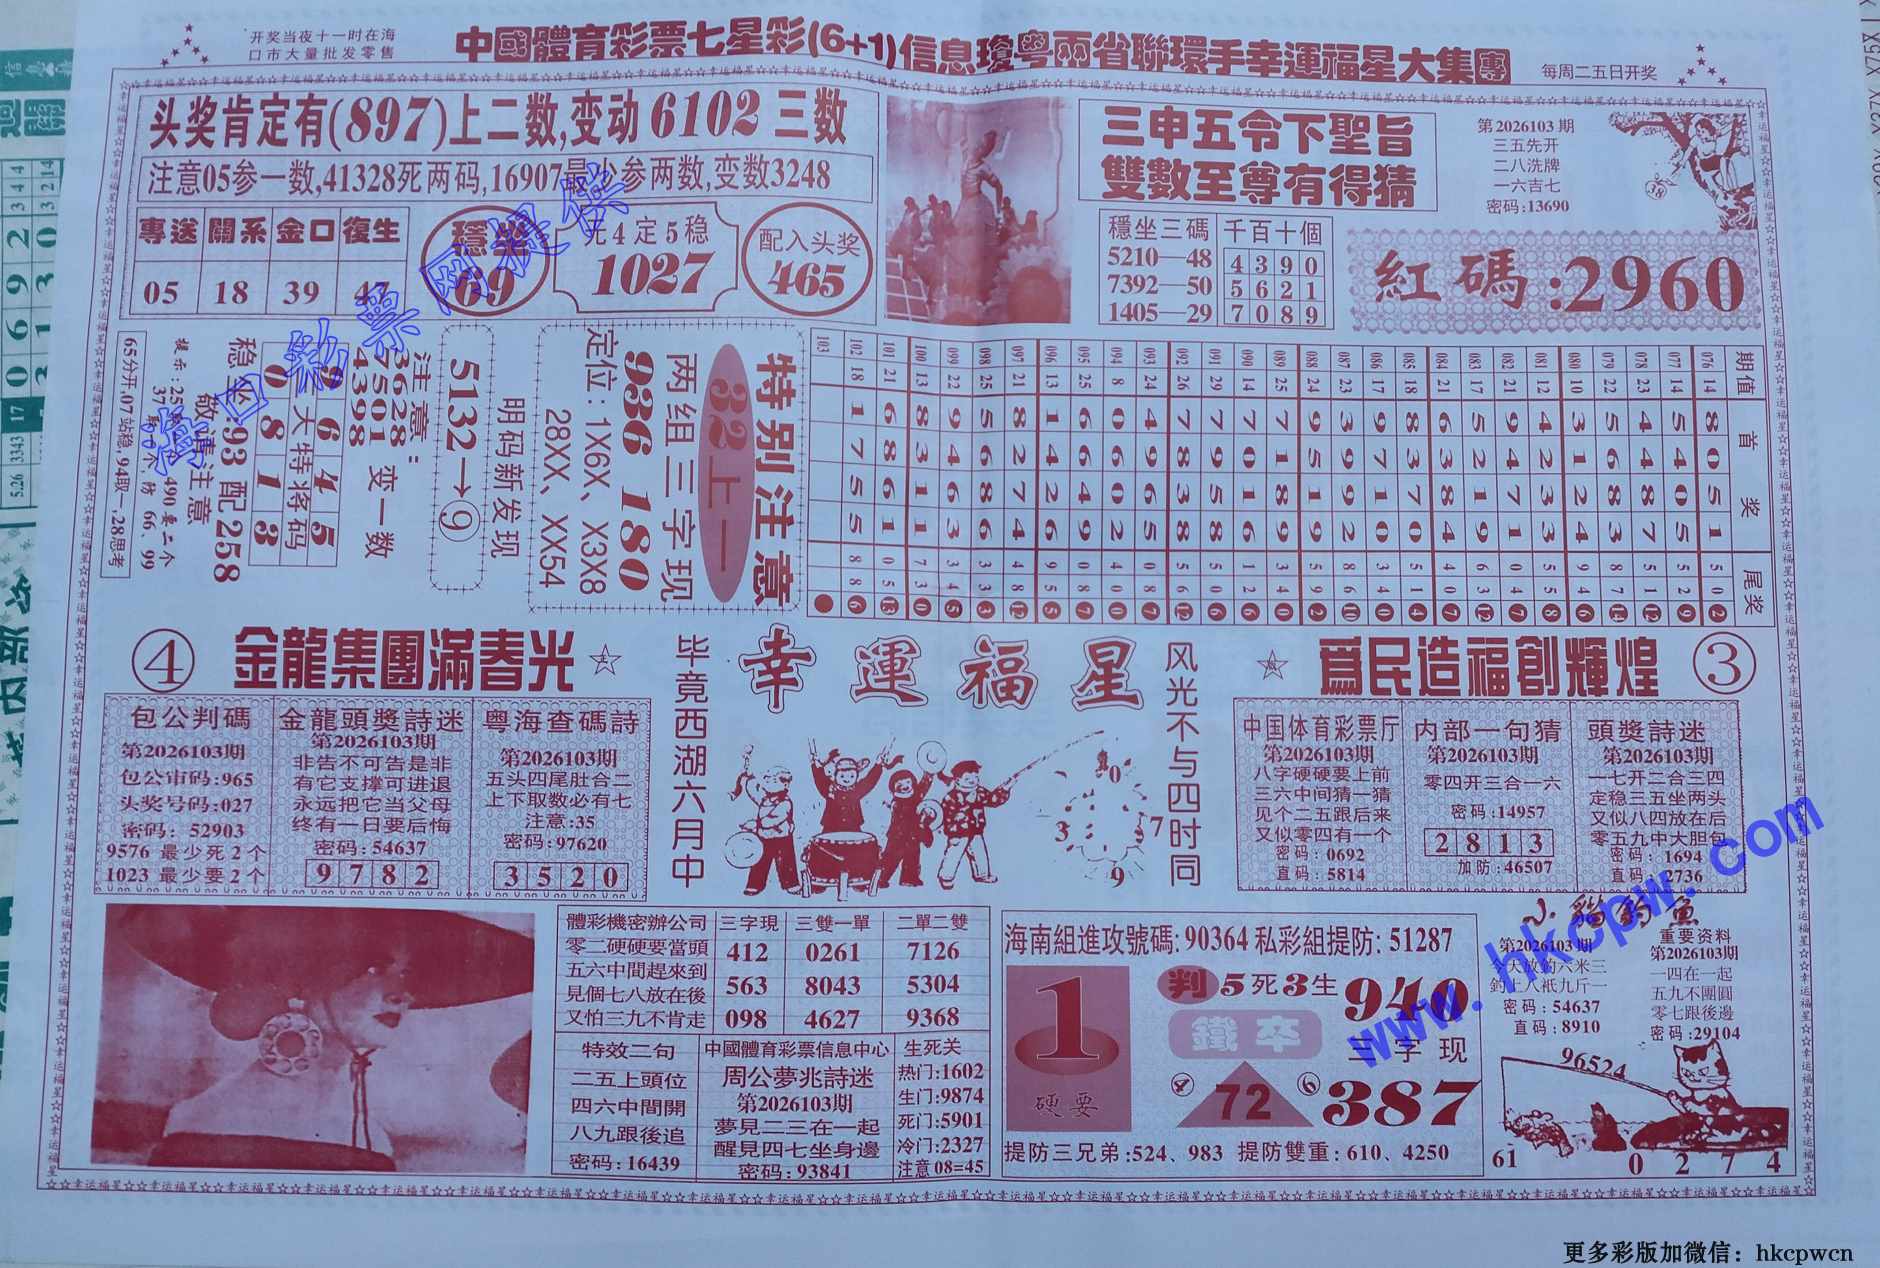 开奖当夜十一时在海
口市大量批发零售
中國體育彩票七星彩(6+1)信息瓊粤兩省聯環手幸運福星大集團
每周二五日开奖
头奖肯定有(897)上二数,变动6102三数
注意05参一数,41328死两码,16907最少参两数,变数3248
專送 關系 金口 復生
05 18 39 47
穩坐
69
4定5稳
1027
配入头奖
465
三申五令下聖旨
雙數至尊有得猜
第2026103期
三五先开
二八洗牌
一六吉七
密码:13690
穩坐三碼
5210—48
7392—50
1405—29
千百十個
4390
5621
7089
紅碼:2960
特别注意
32上一
两组三字现
936 180
定位:1X6X、X3X8
28XX、XX54
明码新发现
5132→⑨
注意:
3628
7501 变一数
4398
9645
大特将码
0813
敬请注意
稳坐:93配258
65分开,07站稳,94取
,28思考
期值 首奖 尾奖
076 14 8051 50 2
077 14 5405 52 9
078 23 4487 51 12
079 22 5683 87 14
080 10 3124 94 6
081 12 4233 55 8
082 21 9471 04 7
083 17 5219 63 12
084 21 6384 40 7
085 18 8370 51 4
086 17 9710 34 0
087 23 3992 86 10
088 24 9519 59 2
089 25 7189 34 0
090 14 7016 12 6
091 29 7958 50 6
092 26 7838 56 12
093 24 4965 08 7
094 8 0602 40 0
095 25 6649 08 7
096 13 1426 95 5
097 21 8274 48 12
098 25 5686 33 3
099 22 9463 34 5
100 13 8311 73 0
101 21 6861 05 13
102 18 1755 88 6
103
④ 金龍集團滿春光
毕竟西湖六月中
幸運福星
风光不与四时同
爲民造福創輝煌 ③
包公判碼
第2026103期
包公审码:965
头奖号码:027
密码:52903
9576 最少死2个
1023 最少要2个
金龍頭獎詩迷
第2026103期
非告不可告是非
有它支撑可进退
永远把它当父母
终有一日要后悔
密码:54637
9782
粤海查碼詩
第2026103期
五头四尾肚合二
上下取数必有七
注意:35
密码:97620
3520
0
3
7
9
中国体育彩票厅
第2026103期
八字硬硬要上前
三六中间猜一猜
见个二五跟后来
又似零四有一个
密码:0692
直码:5814
内部一句猜
第2026103期
零四开三合一六
密码:14957
2813
加防:46507
頭獎詩迷
第2026103期
一七开二合三四
定稳三五坐两头
又似八四放在后
零五九中大胆包
密码:1694
直码:2736
體彩機密辦公司
零二硬硬要當頭
五六中間趕來到
見個七八放在後
又怕三九不肯走
三字現 三雙一單 二單二雙
412 0261 7126
563 8043 5304
098 4627 9368
特效二句
二五上頭位
四六中間開
八九跟後追
密码:16439
中國體育彩票信息中心
周公夢兆詩迷
第2026103期
夢見二三在一起
醒見四七坐身邊
密码:93841
生死关
热门:1602
生门:9874
死门:5901
冷门:2327
注意08=45
海南組進攻號碼:90364 私彩組提防:51287
1
硬要
判 5死3生 940
鐵卒
三字现
④ 72 ⑥ 387
提防三兄弟:524、983 提防雙重:610、4250
小猫釣魚
第2026103期
今天放釣六米三
釣上八祇九斤一
密码:54637
直码:8910
重要资料
第2026103期
一四在一起
五九不團圓
零七跟後邊
密码:29104
96524
61
0 2 7 4
海口彩票网提供
www.hkcpw.com
更多彩版加微信：hkcpwcn